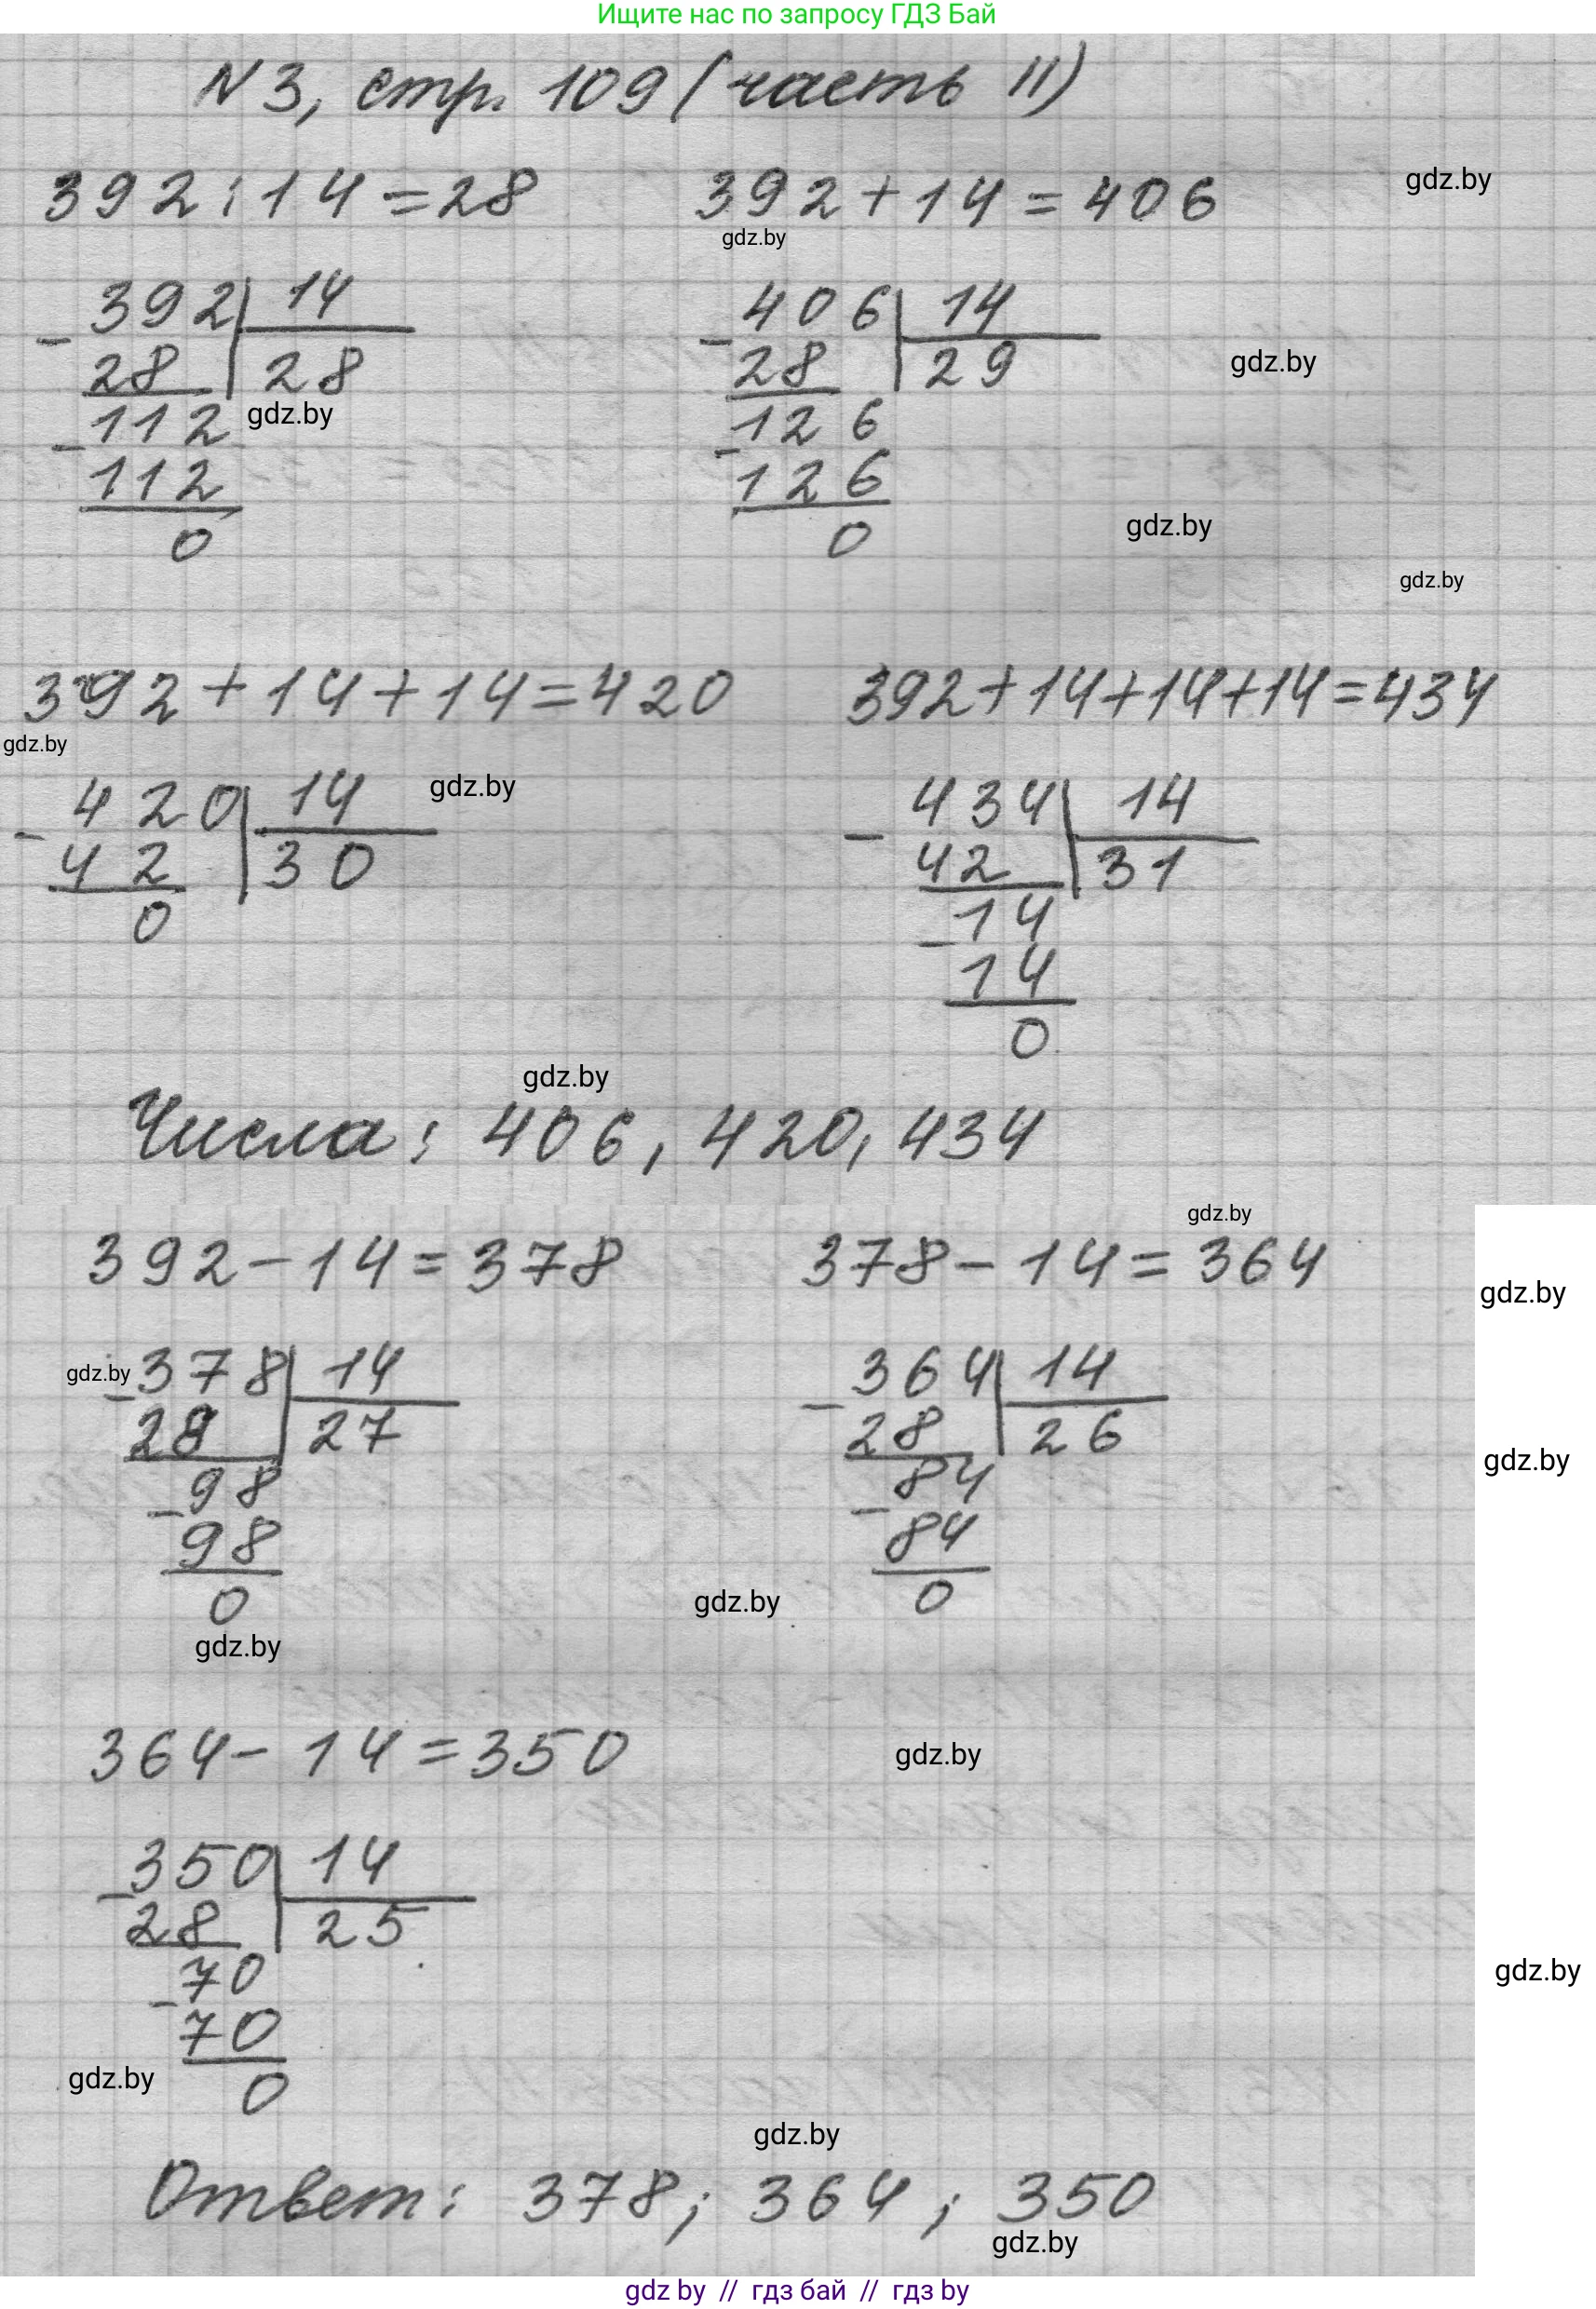 Ищите нас по запросу ГДЗ Бай
N 3, стр. 109 (часть II)
392 : 14 = 28
392 + 14 = 406
gdz.by
gdz.by
- 392 14
28 28
gdz.by
- 112
112
0
- 406 14
28 29
gdz.by
- 126
126
0
gdz.by
gdz.by
392 + 14 + 14 = 420
392 + 14 + 14 + 14 = 434
gdz.by
- 420 14
gdz.by
42 30
0
- 434 14
42 31
- 14
14
0
gdz.by
Числа: 406, 420, 434
gdz.by
392 - 14 = 378
378 - 14 = 364
gdz.by
gdz.by
- 378 14
28 27
- 98
98
0
- 364 14
28 26
gdz.by
- 84
84
0
gdz.by
gdz.by
364 - 14 = 350
gdz.by
- 350 14
28 25
- 70
70
0
gdz.by
gdz.by
gdz.by
Ответ: 378; 364; 350
gdz.by
gdz by // гдз бай // гдз by